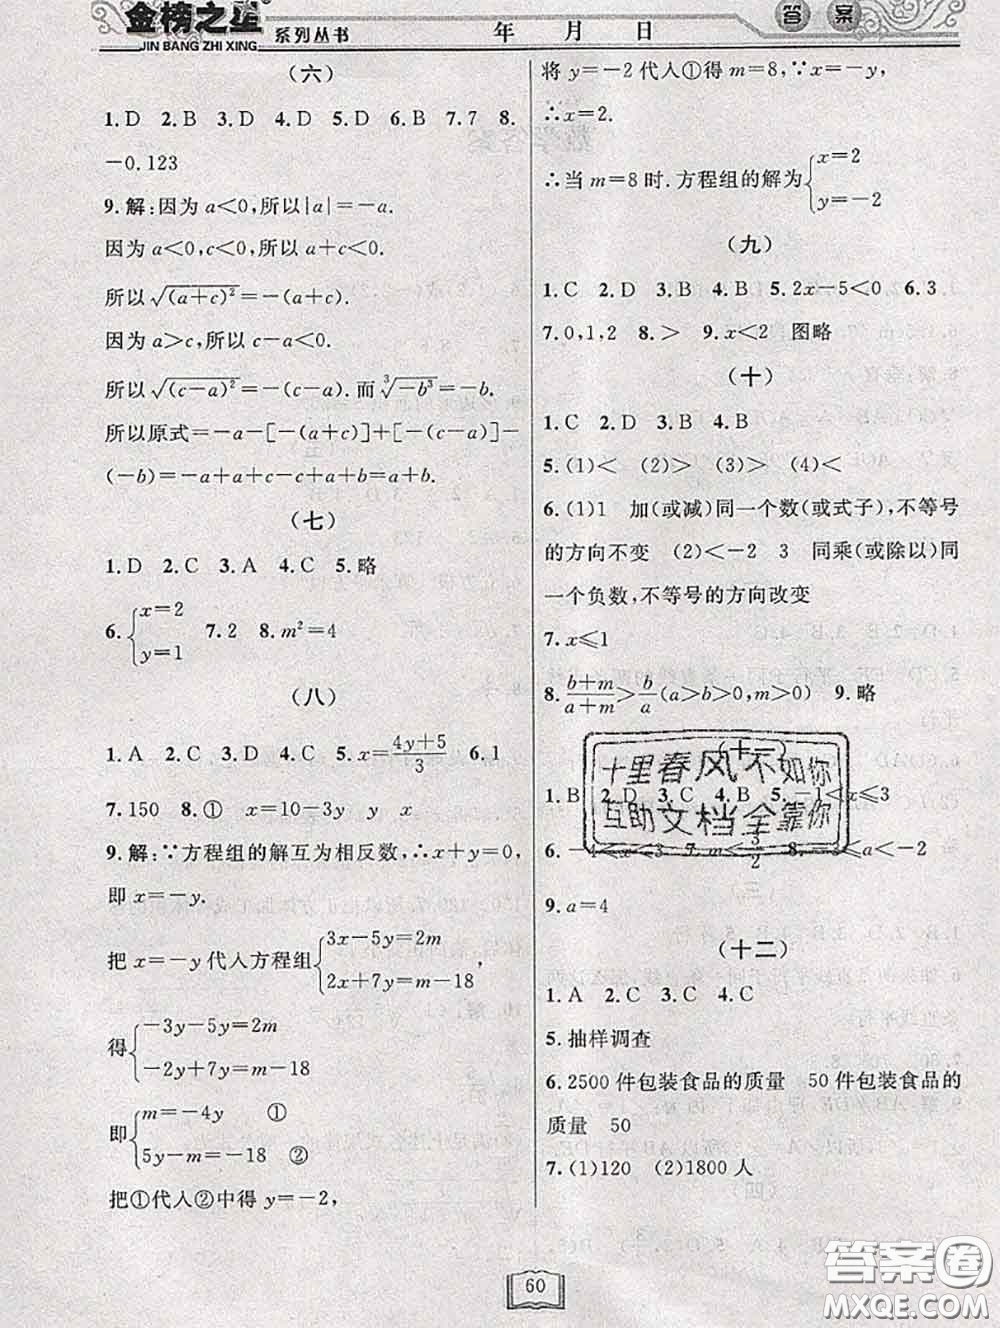 金榜之星
JIN BANG ZHI XING
系列丛书
年 月 日
答 案
(六)
1.D 2.B 3.D 4.D 5.D 6.B 7.7 8.
-0.123
9.解:因为a<0,所以|a|=-a.
因为a<0,c<0,所以a+c<0.
所以√(a+c)²=-(a+c).
因为a>c,所以c-a<0.
所以√(c-a)²=-(c-a).而∛-b³=-b.
所以原式=-a-[-(a+c)]+[-(c-a)]-
(-b)=-a+a+c-c+a+b=a+b.
(七)
1.D 2.C 3.A 4.C 5.略
6.{x=2 y=1 7.2 8.m²=4
(八)
1.A 2.C 3.D 4.C 5.x=(4y+5)/3 6.1
7.150 8.① x=10-3y y x
9.解:∵方程组的解互为相反数,∴x+y=0,
即x=-y.
把x=-y代人方程组{3x-5y=2m 2x+7y=m-18,
得{-3y-5y=2m -2y+7y=m-18
即{m=-4y ① 5y-m=-18 ②
把①代人②中得y=-2,
将y=-2代人①得m=8,∵x=-y,
∴x=2.
∴当m=8时.方程组的解为{x=2 y=-2
(九)
1.C 2.D 3.B 4.B 5.2x-5<0 6.3
7.0,1,2 8.> 9.x<2 图略
(十)
1.C 2.D 3.B 4.B
5.(1)< (2)> (3)> (4)<
6.(1)1 加(或减)同一个数(或式子),不等号
的方向不变 (2)<-2 3 同乘(或除以)同
一个负数,不等号的方向改变
7.x≤1
8.(b+m)/(a+m)>b/a(a>b>0,m>0) 9.略
(十一)
十里春风不如你
1.B 2.D 3.C 4.B 5.-1<x≤3
互助文档全靠你
6.-4<x<3 7.m<3/2 8.-3≤a<-2
9.a=4
(十二)
1.A 2.C 3.C 4.C
5.抽样调查
6.2500件包装食品的质量 50件包装食品的
质量 50
7.(1)120 (2)1800人
60
答案圈
MXQE.COM